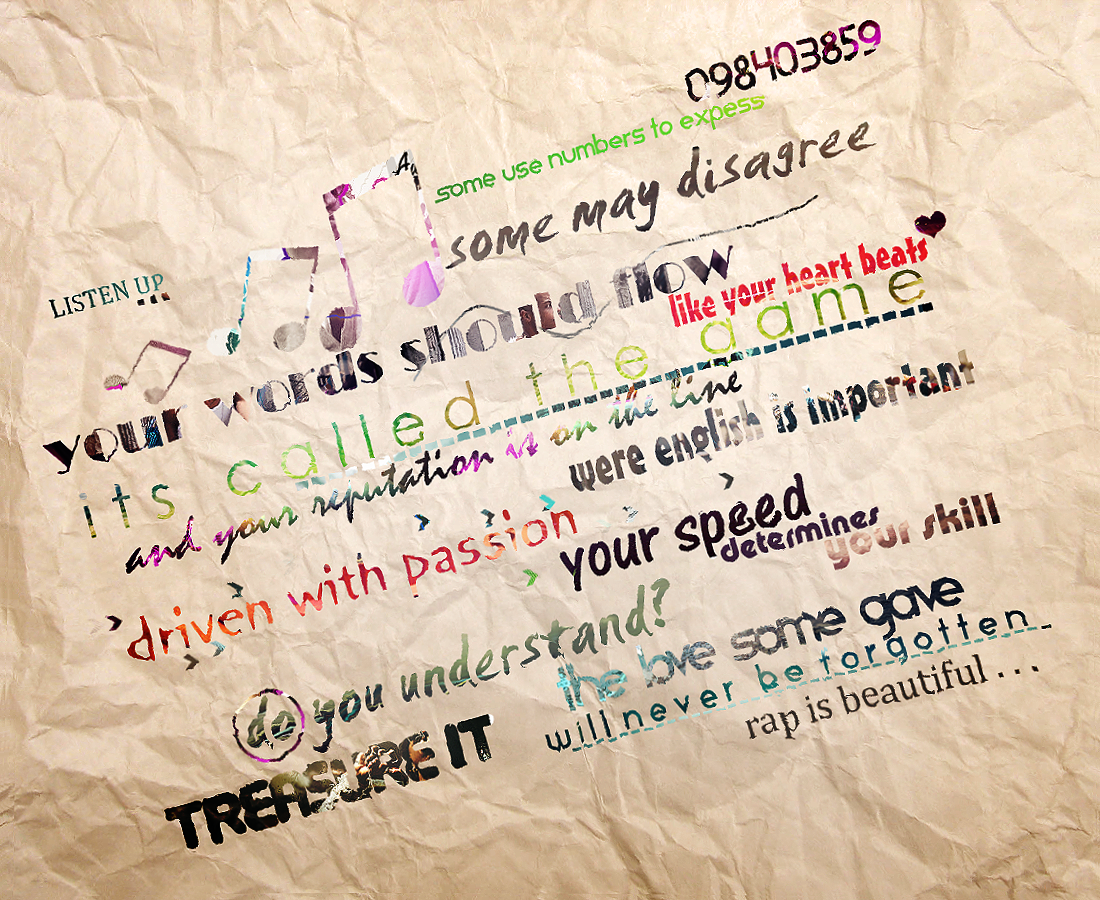 098403859
some use numbers to expess
some may disagree
LISTEN UP
...
your words should flow
like your heart beats
its called the game
and your reputation is on the line
were english is important
driven with passion
your speed
determines
your skill
do you understand?
the love some gave
will never be forgotten
rap is beautiful . . .
TREASURE IT